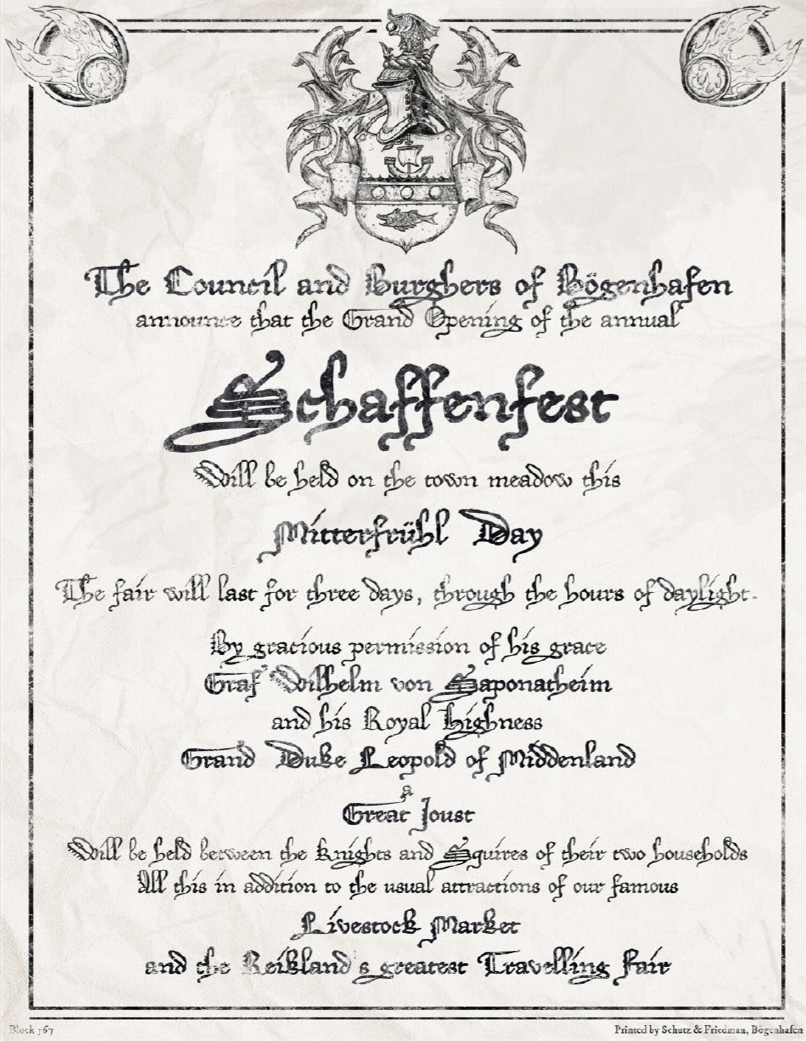 The Council and Burghers of Bögenhafen
announce that the Grand Opening of the annual
Schaffenfest
Will be held on the town meadow this
Mitterfrühl Day
The fair will last for three days, through the hours of daylight.
By gracious permission of his grace
Graf Wilhelm von Saponatheim
and his Royal Highness
Grand Duke Leopold of Middenland
a
Great Joust
Will be held between the Knights and Squires of their two households
All this in addition to the usual attractions of our famous
Livestock Market
and the Reikland's greatest Travelling Fair
Block 167
Printed by Schutz & Friedman, Bögenhafen